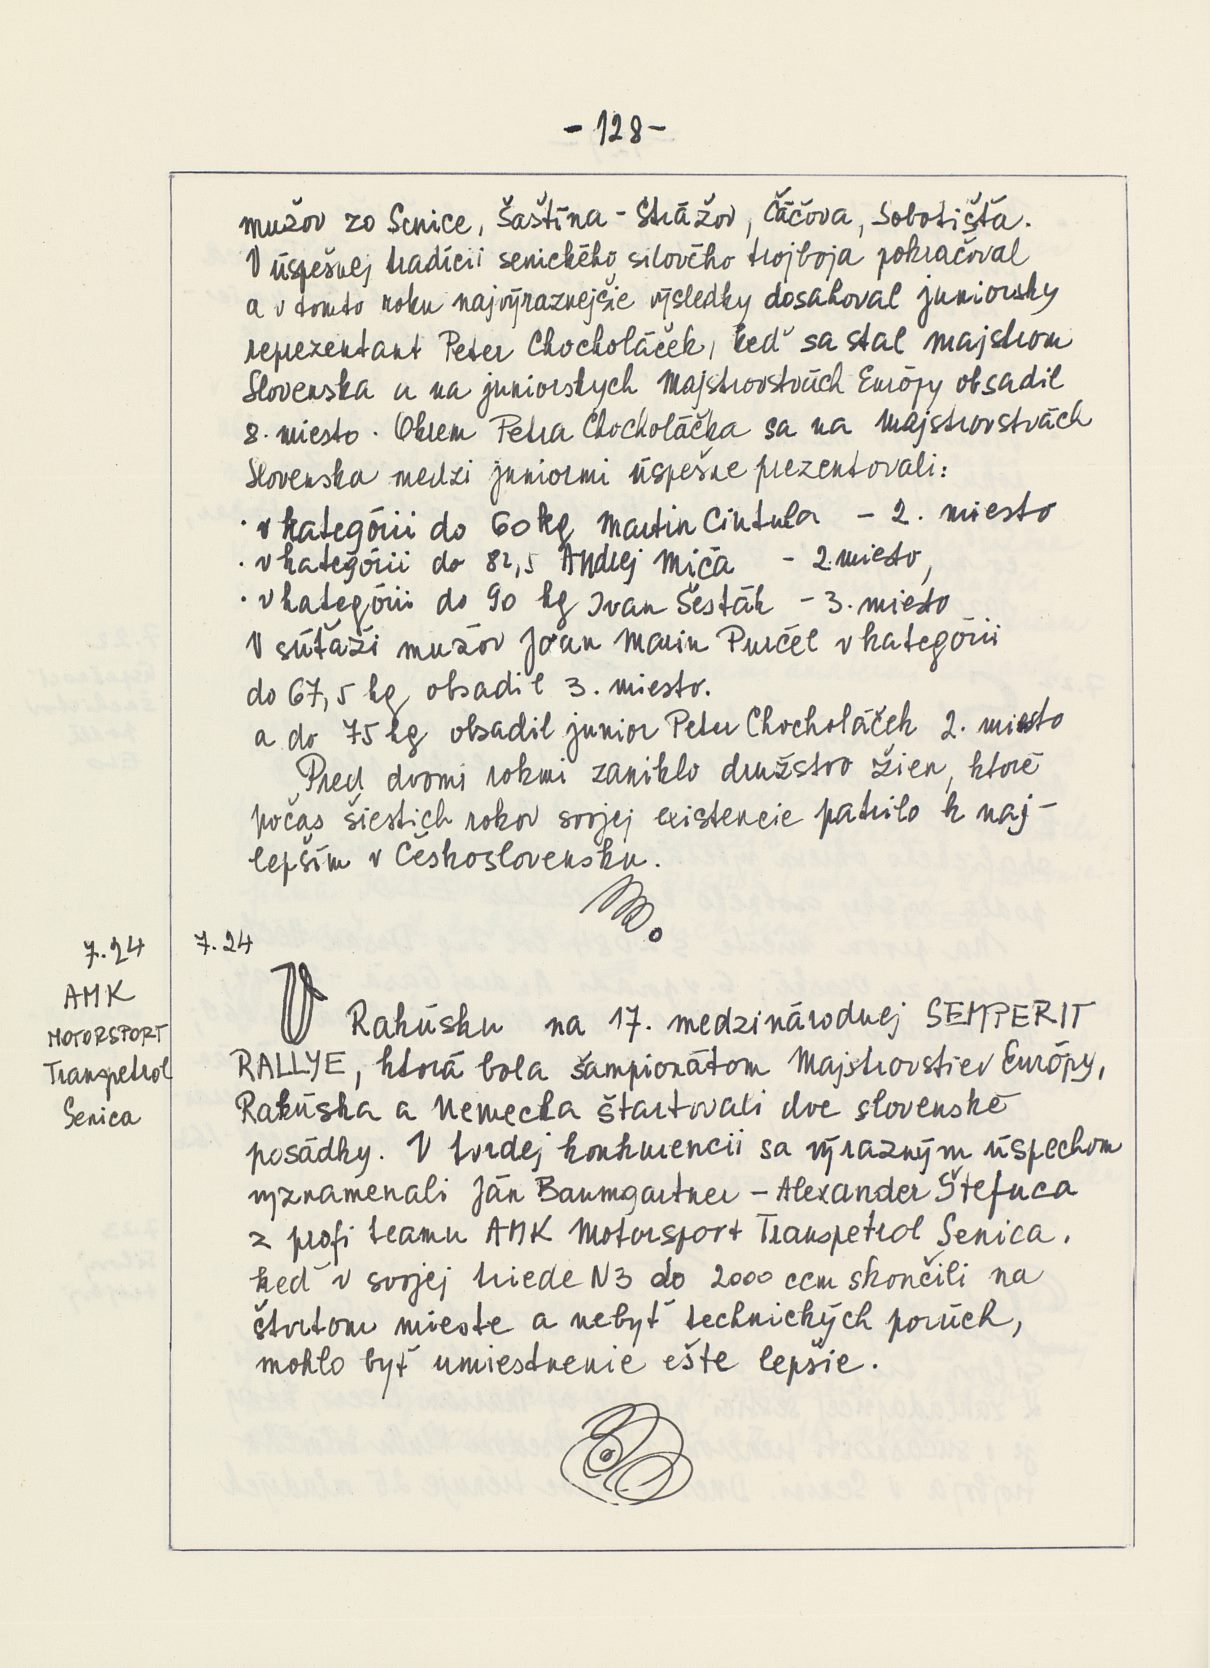 - 128 -
mužov zo Senice, Šaštína - Strážov, Čáčova, Sobotišťa.
V úspešnej tradícii senického silového trojboja pokračoval
a v tomto roku najvýraznejšie výsledky dosahoval juniorsky
reprezentant Peter Chocholáček, keď sa stal majstrom
Slovenska a na juniorskych Majstrovstvách Európy obsadil
8. miesto. Okrem Petra Chocholáčka sa na Majstrovstvách
Slovenska medzi juniormi úspešne prezentovali:
· v kategórii do 60 kg Martin Cintula - 2. miesto
· v kategórii do 82,5 Andrej Mića - 2. miesto,
· v kategórii do 90 kg Ivan Šesták - 3. miesto
V súťaži mužov Joan Marin Purčel v kategórii
do 67,5 kg obsadil 3. miesto.
a do 75 kg obsadil junior Peter Chocholáček 2. miesto
Pred dvomi rokmi zaniklo družstvo žien, ktoré
počas šiestich rokov svojej existencie patrilo k naj-
lepším v Československu.
7.24
AMK
MOTORSPORT
Transpetrol
Senica
7.24
V Rakúsku na 17. medzinárodnej SEMPERIT
RALLYE, ktorá bola šampionátom Majstrovstiev Európy,
Rakúska a Nemecka štartovali dve slovenské
posádky. V tvrdej konkurencii sa výrazným úspechom
vyznamenali Ján Baumgartner - Alexander Štefuca
z profi teamu AMK Motorsport Transpetrol Senica.
keď v svojej triede N3 do 2000 ccm skončili na
štvrtom mieste a nebyť technických porúch,
mohlo byť umiestnenie ešte lepšie.